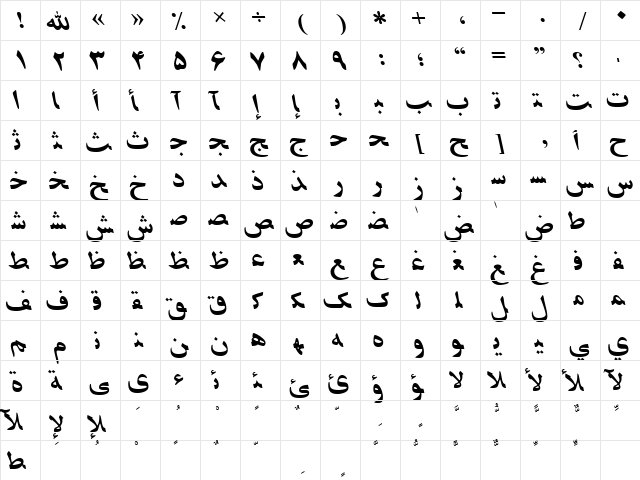 ! ﷲ « » ٪ × ÷ ( ) * + ، − . / ٠
١ ۲ ۳ ۴ ۵ ۶ ۷ ۸ ۹ : ؛ “ = ” ؟
ا ﺎ أ ﺄ آ ﺂ إ ﺈ ﺑ ﺒ ﺐ ب ﺗ ﺘ ﺖ ت
ﺛ ﺜ ﺚ ث ﺟ ﺠ ﺞ ج ﺣ ﺤ [ ﺢ ] ﺃ ح
ﺧ ﺨ ﺦ خ د ﺪ ذ ﺬ ر ﺮ ز ﺰ ﺳ ﺴ ﺲ س
ﺷ ﺸ ﺶ ش ﺻ ﺼ ﺺ ص ﺿ ﻀ ﺾ ض ط
ﻂ ﻃ ﻇ ﻈ ﻆ ظ ﻋ ﻌ ﻊ ع ﻏ ﻐ ﻎ غ ﻓ ﻔ
ﻒ ف ﻗ ﻘ ﻖ ق ﻛ ﻜ ﻚ ك ﻟ ﻠ ﻞ ل ﻣ ﻤ
ﻢ م ﻧ ﻨ ﻦ ن ﻫ ﻬ ﻪ ه و ﻮ ﻳ ﻴ ﻲ ي
ة ﺔ ى ﻯ ء ﺋ ﺌ ﺊ ئ ؤ ﺆ ﻻ ﻼ ﻷ ﻸ ﻵ
ﻶ ﻹ ﻺ
ﻂ